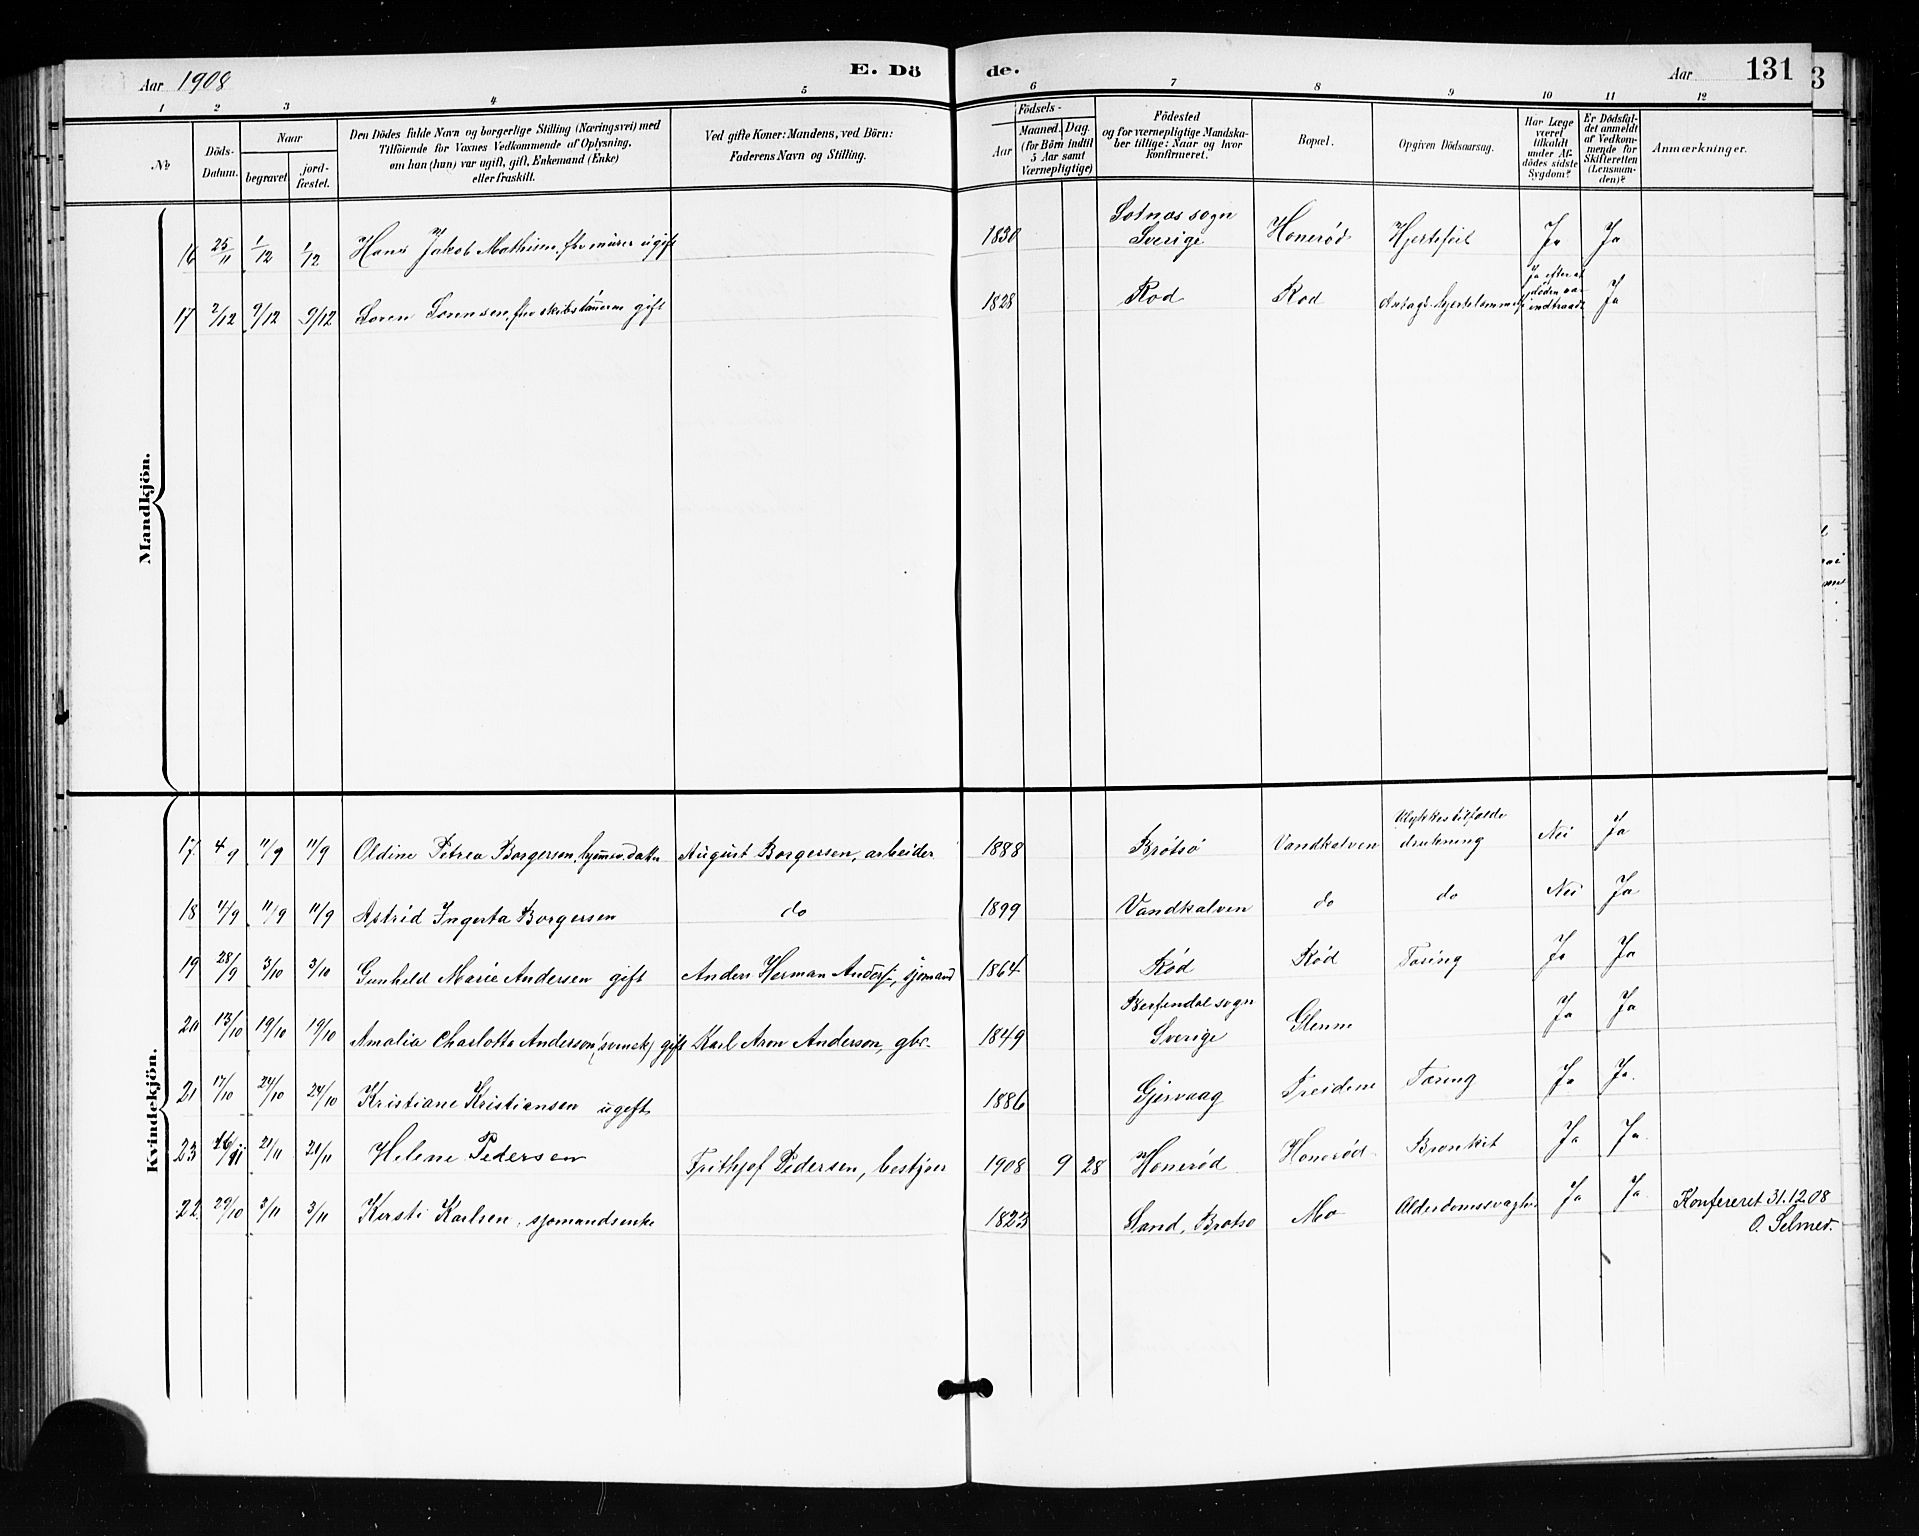 Aar 1908
E. Dö
de.
Aar
131
3
1 2 3 4 5 6 7 8 9 10 11 12
No
Döds-
Datum.
Naar
begravet
jord-
fæstet.
Den Dödes fulde Navn og borgerlige Stilling (Næringsvei) med
Tilföiende for Voxnes Vedkommende af Oplysning,
om han (hun) var ugift, gift, Enkemand (Enke)
eller fraskilt.
Ved gifte Koner: Mandens, ved Börn:
Faderens Navn og Stilling.
Födsels-
Aar
Maaned. Dag.
(for Börn indtil
5 Aar samt
Værnepligtige)
Födested
og for værnepligtige Mandska-
ber tillige: Naar og hvor
konfirmeret.
Bopæl.
Opgiven Dödsaarsag.
Har Læge
været
tilkaldt
under Af-
dödes sidste
Sygdom?
Er Dödsfal-
det anmeldt
af Vedkom-
mende for
Skifteretten
(Lensman-
den)?
Anmærkninger.
Mandkjön.
16 25/11 1/12 1/12 Hans Jakob Mathisen, fhv murer ugift 1830 Sotnæs sogn
Sverige Honerød Hjertefeil Ja Ja
17 2/12 9/12 9/12 Soren Sorensen, fhv gift 1828 Rod Rod Antagl. hjertelammelse Ja efter at
døden var
indtraadt Ja
Kvindekjön.
17 4/9 11/9 11/9 Oldine Petrea Borgersen, datter August Borgersen, arbeider 1888 Brötsö Vandkalven Ulykkestilfælde
drukning Nei Ja
18 4/9 11/9 11/9 Astrid Ingerta Borgersen do 1899 Vandkalven do do Nei Ja
19 28/9 3/10 3/10 Gunhild Marie Andersen gift Anders Herman Anders., sjømand 1864 Rød Rød Tæring Ja Ja
20 13/10 19/10 19/10 Amalia Charlotte Anderson (svensk) gift Karl Aron Anderson, gbr. 1849 sogn
Sverige Glenne Ja Ja
21 17/10 24/10 24/10 Kristiane Kristiansen ugift 1886 Gjervaag Treidene Tæring Ja Ja.
23 16/11 21/11 21/11 Helene Pedersen Frithjof Pedersen, bestyrer 1908 9 28 Honerød Honerød Bronkit Ja Ja.
22. 29/10 3/11 3/11 Kirsti Karlsen, sjømandsenke 1823 Sand, Brøtsø Mo Alderdomssvaghed Ja Ja. Konfereret 31.12.08
O. Selmer.